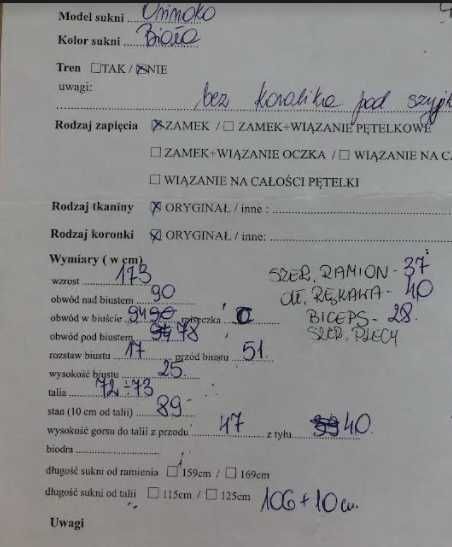 Model sukni
Kolor sukni Biała
Tren ☐TAK / ☒NIE
uwagi:
bez koralika pod szyjk
Rodzaj zapięcia ☒ZAMEK / ☐ ZAMEK+WIĄZANIE PĘTELKOWE
☐ ZAMEK+WIĄZANIE OCZKA / ☐ WIĄZANIE NA CA
☐ WIĄZANIE NA CAŁOŚCI PĘTELKI
Rodzaj tkaniny ☒ ORYGINAŁ / inne :
Rodzaj koronki ☒ ORYGINAŁ / inne:
Wymiary ( w cm)
wzrost 173
SZER. RAMION - 37
obwód nad biustem 90
DŁ. RĘKAWA - 40
obwód w biuście 90 miseczka
BICEPS - 28.
obwód pod biustem 78
SZER. PLECY
rozstaw biustu 17 przód biustu 51.
wysokość biustu 25.
talia 72÷73
stan (10 cm od talii) 89
wysokość gorsu do talii z przodu 47 z tyłu 40.
biodra
długość sukni od ramienia ☐ 159cm / ☐ 169cm
długość sukni od talii ☐ 115cm / ☐ 125cm 106+10 cm.
Uwagi